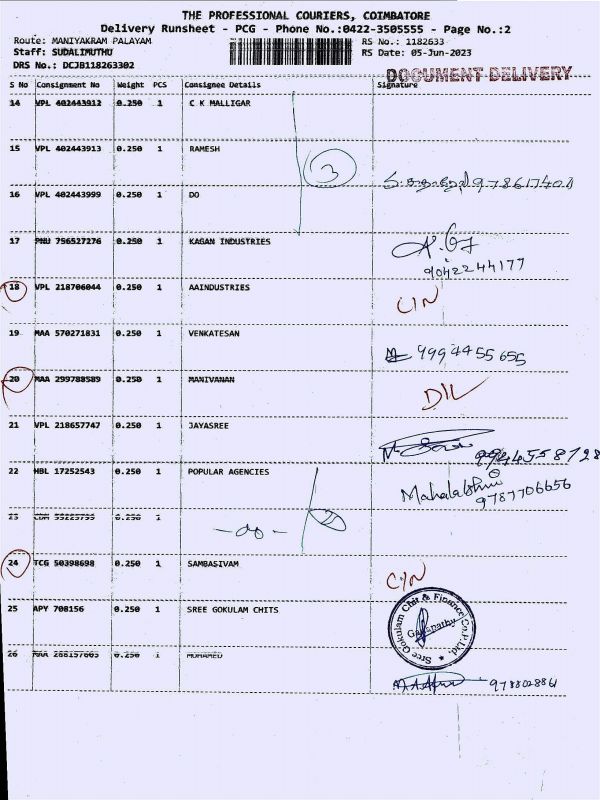 THE PROFESSIONAL COURIERS, COIMBATORE
Delivery Runsheet - PCG - Phone No.:0422-3505555 - Page No.:2
Route: MANIYAKRAM PALAYAM RS No.: 1182633
Staff: SUDALIMUTHU RS Date: 05-Jun-2023
DRS No.: DCJB118263302
DOCUMENT DELIVERY
S No Consignment No Weight PCS Consignee Details Signature
14 VPL 402443912 0.250 1 C K MALLIGAR
15 VPL 402443913 0.250 1 RAMESH
3
16 VPL 402443999 0.250 1 DO
17 PNU 756527276 0.250 1 KAGAN INDUSTRIES
9042244177
18 VPL 218706044 0.250 1 AAINDUSTRIES
CIN
19 MAA 570271831 0.250 1 VENKATESAN
9994455655
20 MAA 299788589 0.250 1 MANIVANAN
DIL
21 VPL 218657747 0.250 1 JAYASREE
9944558728
22 HBL 17252543 0.250 1 POPULAR AGENCIES
Mahalakshmi
9787706656
23 0.250 1
- do - 2
24 TCG 50398698 0.250 1 SAMBASIVAM
CIN
25 APY 708156 0.250 1 SREE GOKULAM CHITS
Sree Gokulam Chit & Finance Co.P.Ltd.
Ganapathy
26 MAA 288157665 0.250 1 MOHAMED
9788028861